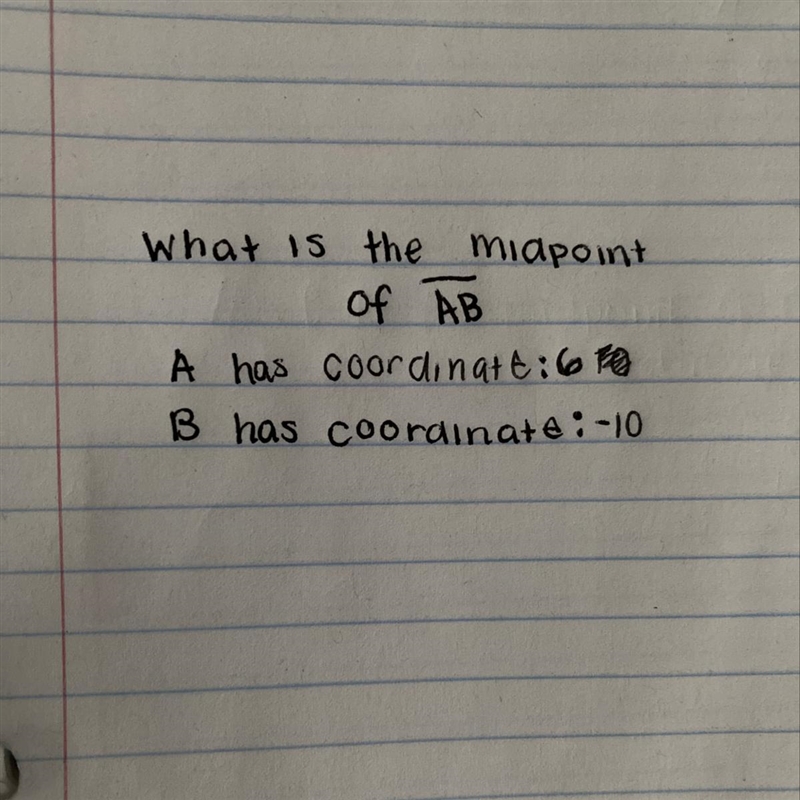 What is the midpoint
of AB
A has coordinate: 6
B has coordinate: -10